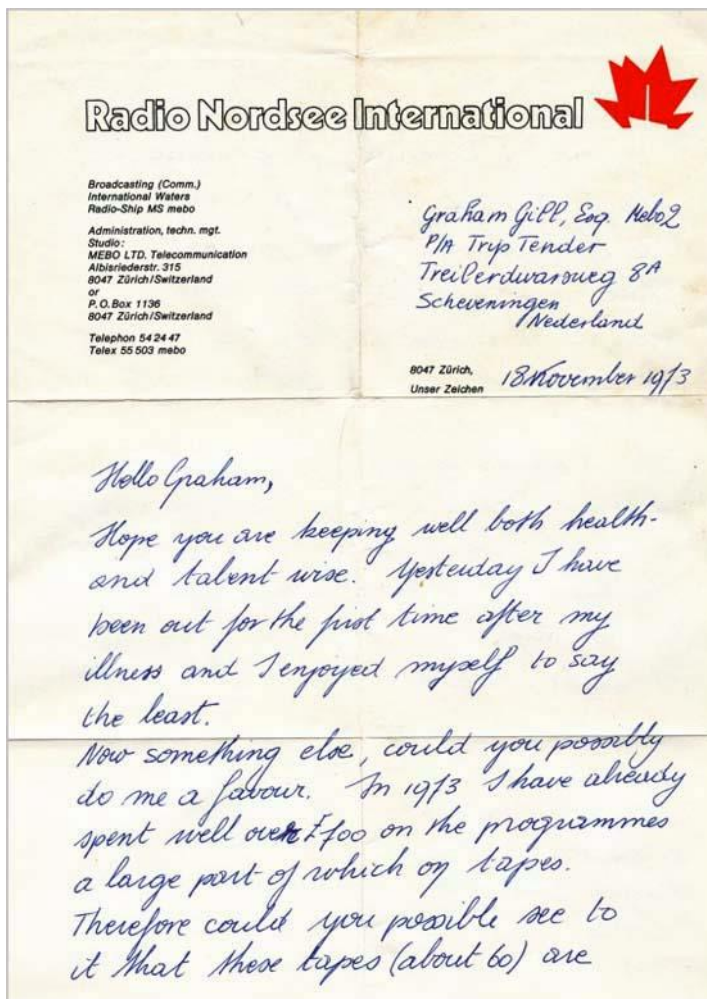 Radio Nordsee International
Broadcasting (Comm.)
International Waters
Radio-Ship MS mebo
Administration, techn. mgt.
Studio:
MEBO LTD. Telecommunication
Albisriederstr. 315
8047 Zürich/Switzerland
or
P.O.Box 1136
8047 Zürich/Switzerland
Telephon 54 24 47
Telex 55 503 mebo
Graham Gill, Esq. Mebo 2
P/A Trip Tender
Treilerdwarsweg 8A
Scheveningen
Nederland
8047 Zürich,
Unser Zeichen
18 November 1973
Hello Graham,
Hope you are keeping well both health-
and talent wise. Yesterday I have
been out for the first time after my
illness and I enjoyed myself to say
the least.
Now something else, could you possibly
do me a favour. In 1973 I have already
spent well over on the programmes
a large part of which on tapes.
Therefore could you possible see to
it that these tapes (about 60) are